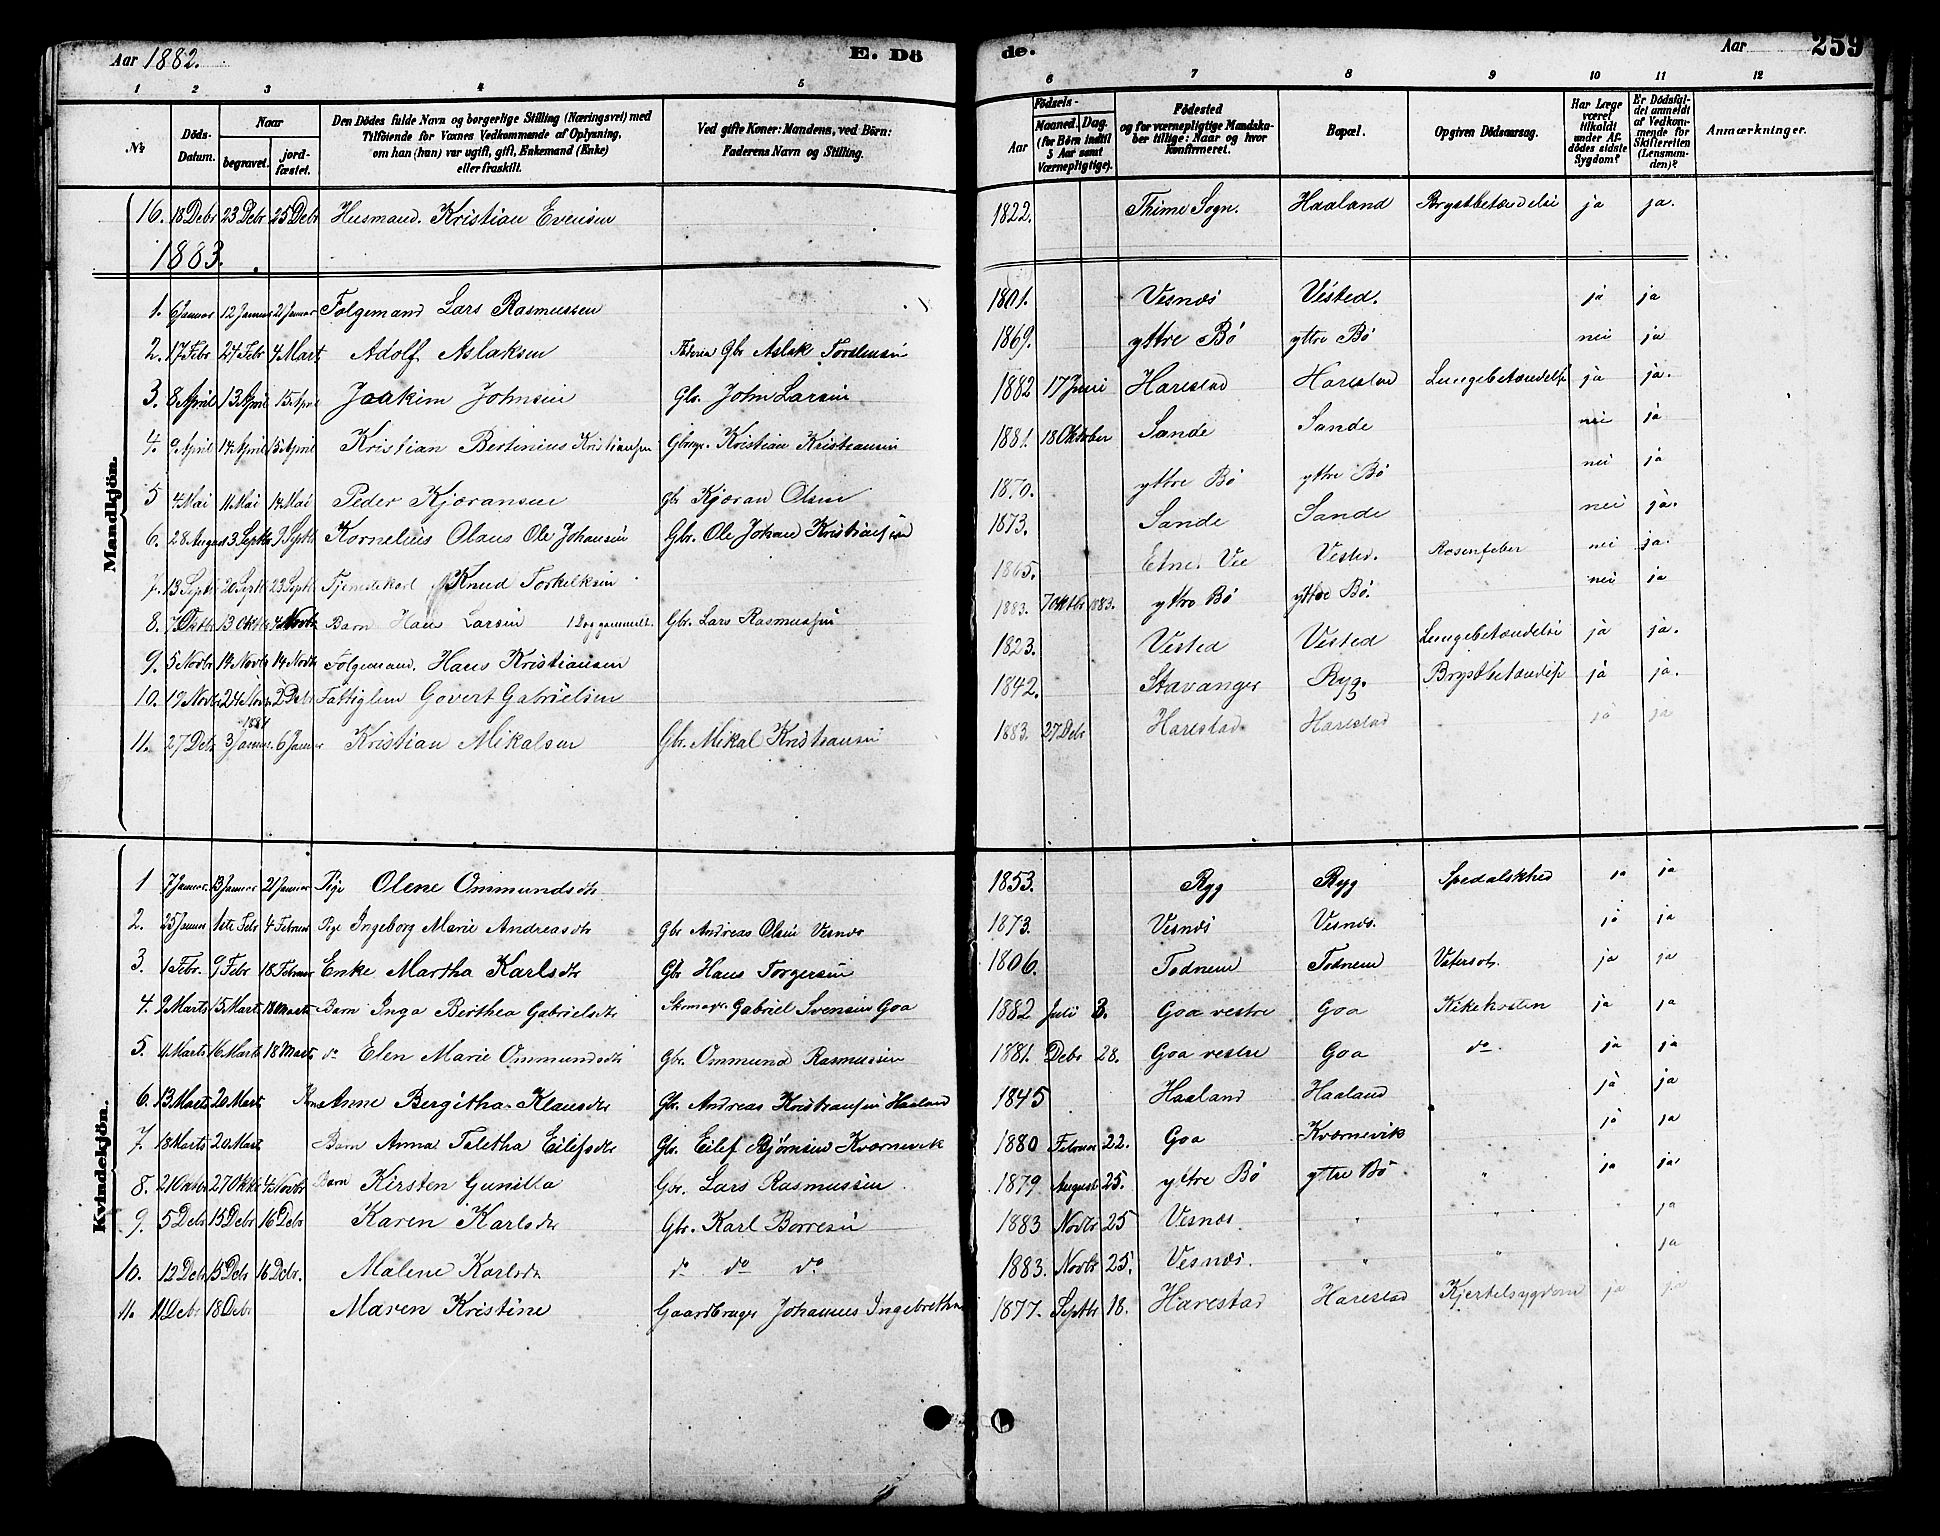 Aar 1882. E. Dö de. Aar 259
1 2 3 4 5 6 7 8 9 10 11 12
№ Döds-Datum. Naar begravet. jordfæstet. Den Dödes fulde Navn og borgerlige Stilling (Næringsvei) med Tilföiende for Voxnes Vedkommende af Oplysning, om han (hun) var ugift, gift, Enkemand (Enke) eller fraskilt. Ved gifte Koner: Mandens, ved Börn: Faderens Navn og Stilling. Födsels- Aar Maaned. Dag. (for Börn indtil 5 Aar samt Værnepligtige). Födested og for værnepligtige Mandskaber tillige: Naar og hvor konfirmeret. Bopæl. Opgiven Dödsaarsag. Har Læge været tilkaldt under Afdödes sidste Sygdom? Er Dödsfaldet anmeldt af Vedkommende for Skifteretten (Lensmanden)? Anmærkninger.
Mandkjön.
16. 18 Debr 23 Debr 25 Debr Husmand. Kristian Evensen 1822. Thime Sogn. Haaland Brystbetændelse ja ja.
1883.
1. 6 Januar 12 Januar 21 Januar Folgemand Lars Rasmussen 1801. Vesnæs Vested. ja ja
2. 17 Febr 27 Febr 4 Mart Adolf Aslaksen Gbr Aslak Torstensen 1869. yttre Bö yttre Bö nei ja
3. 8 April 13 April 15 April Joakim Johnsen Gbr. John Larsen 1882 17 Juni Harestad Harestad Lungebetændelse ja ja.
4. 9 April 14 April 15 April Kristian Bertinius Kristiansen Gbruger. Kristian Kristiansen 1881. 18 Oktober Sande Sande nei ja
5 4 Mai 11 Mai 14 Mai Peder Kjöransen gbr Kjöran Olsen 1870. yttre Bö yttre Bö nei ja
6. 28 August 3 Septb 9 Septb Kornelius Olaus Ole Johansen Gbr. Ole Johan Kristiansen 1873. Sande Sande nei ja.
7. 13 Septb 20 Septb 23 Septb Tjenestekarl Knud Torkelsen 1865. Etne Vested. Rosenfeber nei ja.
8. 7 Oktbr 13 Oktbr 4 Novbr Barn Hans Larsen 1 Dag gammelt. Gbr. Lars Rasmussen 1883. 7 Oktbr 1883. yttre Bö yttre Bö. nei ja
9. 5 Novbr 14 Novbr 14 Novbr Folgemand. Hans Kristiansen 1823. Vested Vested Lungebetændelse ja ja.
10. 19 Novbr 24 Novbr 2 Debr Fattiglem Govert Gabrielsen 1842. Stavanger Ryg. Brystbetændelse ja ja.
11. 27 Debr 3 Januar 1884 6 Januar Kristian Mikalsen Gbr. Mikal Kristiansen 1883. 27 Debr Harestad. Harestad ja ja
Kvindekjön.
1 7 Januar 13 Januar 21 Januar Pige Olene Ommundsdtr 1853. Ryg Ryg Spedalskhed ja ja
2. 25 Januar 1ste Febr 4 Februar Pige Ingeborg Marie Andreasdtr Gbr Andreas Olsen Vesnæs 1873. Vesnæs Vesnæs. ja ja
3. 1 Febr. 9 Febr 18 Februar Enke Martha Karlsdtr Gbr Hans Torgersen 1806. Todnem Todnem Vatersot. ja ja
4. 9 Marts 15 Mart 18 Marts Barn Inga Berthea Gabrielsdtr Skomager Gabriel Svensen Goa 1882 Juli 3. Goa vestre Goa Kikehosten ja ja
5. 11 Marts 16 Marts 18 Marts do Elen Marie Ommundsdtr Gbr. Ommund Rasmussen 1881. Debr 28. Goa vestre Goa do ja ja
6. 13 Marts 20 Mart Kone Anne Bergitha Klausdtr Gbr. Andreas Kristiansen Haaland 1845 Haaland Haaland ja ja
7. 18 Marts 20 Mart Barn Anna Taletha Eilefsdtr Gbr. Eilef Björnsen Kvernevik 1880 Februar 22. Goa Kværnevik ja ja
8. 21 Oktbr 27 Oktbr 4 Novbr Barn Kirsten Gunilla Gbr. Lars Rasmussen 1879 August 25. yttre Bö yttre Bö " ja ja
9. 5 Debr 13 Debr 16 Debr Karen Karlsdtr Gbr. Karl Borresen 1883 Novbr 25 Vesnæs. " " " ja
10. 12 Debr 15 Debr 16 Debr. Malene Karlsdtr do do do 1883. Novbr 25. Vesnæs. " " " ja
11. 11 Debr 18 Debr Maren Kristine Gaardbruger Johannes Ingebretsen 1877. Septbr 18. Harestad Harestad Kjertelsygdom ja ja